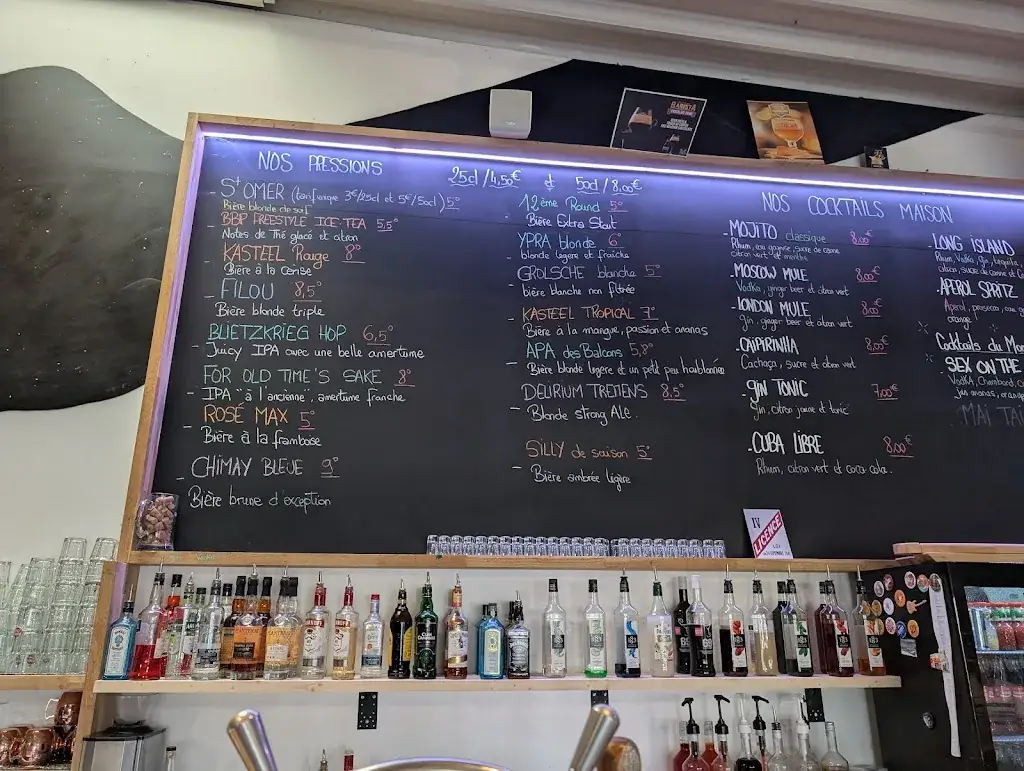 NOS PRESSIONS 25cl/4,50€ et 50cl/8,00€
St OMER (tarif unique 3€/25cl et 5€/50cl) 5°
Bière blonde de soif
BBP FREESTYLE ICE-TEA 5,5°
Notes de Thé glacé et citron
KASTEEL Rouge 8°
Bière à la Cerise
FILOU 8,5°
Bière blonde triple
BLIETZKRIEG HOP 6,5°
Juicy IPA avec une belle amertume
FOR OLD TIME'S SAKE 8°
IPA à l'ancienne, amertume franche
ROSÉ MAX 5°
Bière à la framboise
CHIMAY BLEUE 9°
Bière brune d'exception
12ème Round 5°
Bière Extra Stout
YPRA blonde 6°
blonde légère et fraîche
GROLSCHE blanche 5°
bière blanche non filtrée
KASTEEL TROPICAL 7°
Bière à la mangue, passion et ananas
APA des Balcons 5,8°
Bière blonde légère et un petit peu houblonnée
DELIRIUM TREMENS 8,5°
Blonde strong Ale.
SILLY de saison 5°
Bière ambrée légère
NOS COCKTAILS MAISON
MOJITO classique 8,00€
Rhum, eau gazeuse, sucre de canne
citron vert et menthe
MOSCOW MULE 8,00€
Vodka, ginger beer et citron vert
LONDON MULE 8,00€
Gin, ginger beer et citron vert
CAIPIRINHA 8,00€
Cachaça, sucre et citron vert
GIN TONIC 7,00€
Gin, citron jaune et tonic
CUBA LIBRE 8,00€
Rhum, citron vert et coca cola.
LONG ISLAND
Rhum, Vodka, Gin, Tequila,
citron, sucre de canne et
APEROL SPRITZ
Aperol, prosecco, eau
orange
Cocktails du
SEX ON THE
Vodka, Chambord,
jus ananas, orange
MAI TAI
IV
LICENCE